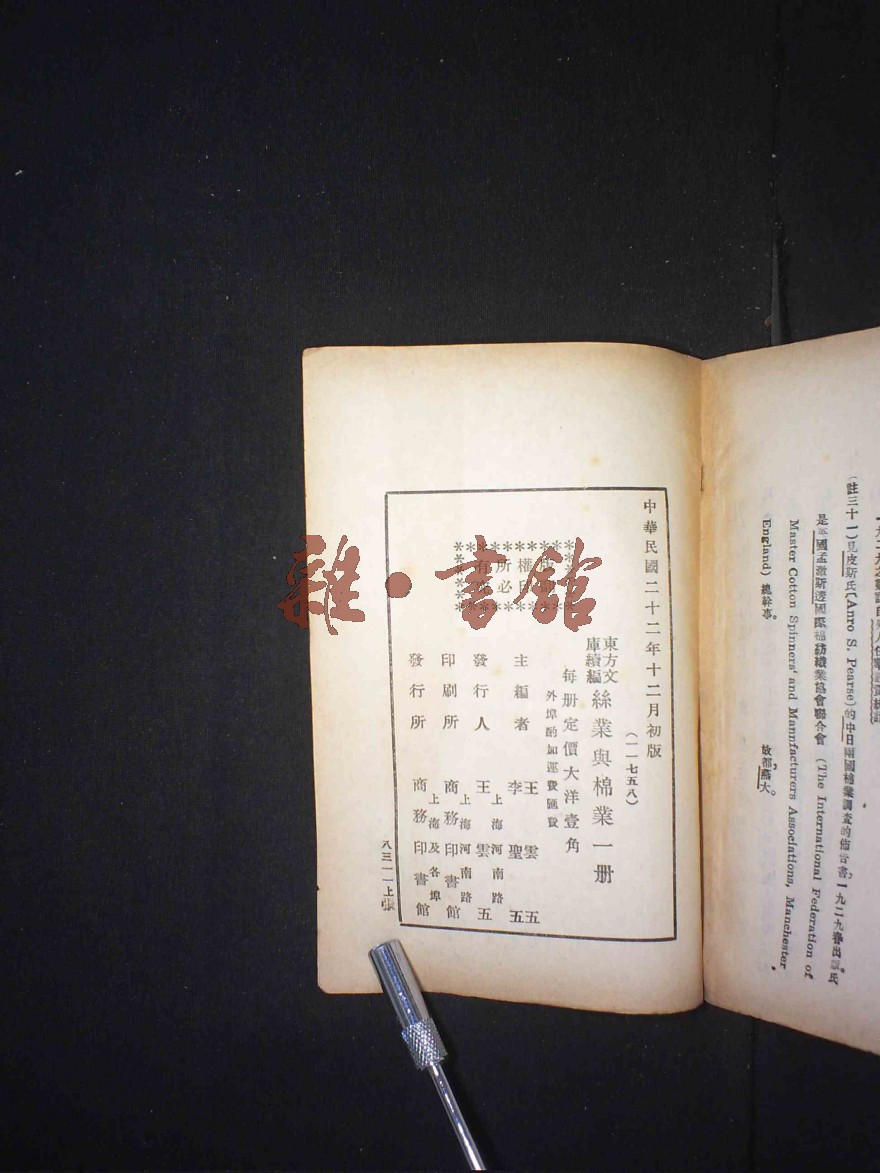 一九二九之
(註三十一)見皮斯氏(Arno S. Pearse)的中日兩國棉業調查的佈告書,一九二九春出。氏
是英國孟澈斯透國際棉紡織業協會聯合會 (The International Federation of
Master Cotton Spinners' and Mannfacturers Associations, Manchester,
England) 總幹事。
故都,燕大。
中華民國二十二年十二月初版
(一一七五八)
東方文庫續編 絲業與棉業一册
每册定價大洋壹角
外埠酌加運費匯費
權
所必
有究
主編者 王雲五 李聖五
發行人 王雲五
上海河南路
印刷所 商務印書館
上海河南路
發行所 商務印書館
上海及各埠
八三一一上張
雜·書館